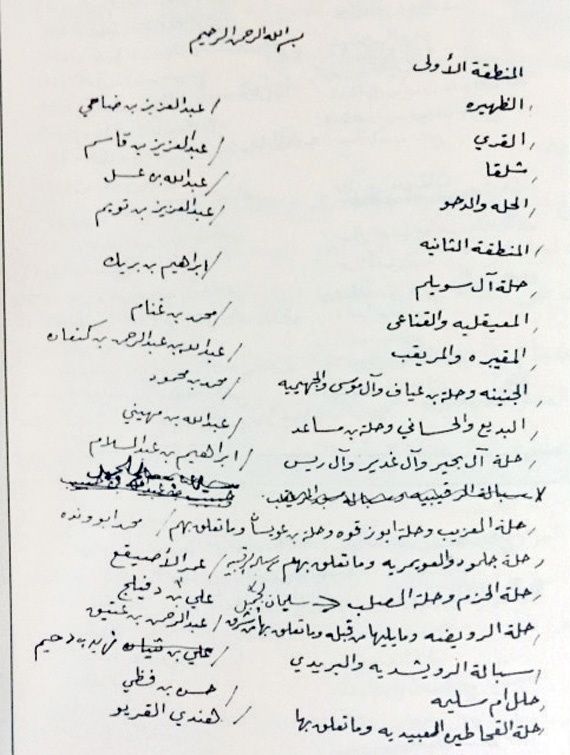 بسم الله الرحمن الرحيم
المنطقة الأولى
الظهيره / عبدالعزيز بن ضاحي
القري / عبدالعزيز بن قاسم
شلقا / عبدالله بن عسل
الحله والدحو / عبدالعزيز بن تويم
المنطقة الثانيه
حلة آل سويلم / ابراهيم بن بريك
المعيقليه والقناعى / محمد بن غنام
المقيبره والمريقب / عبدالله بن عبدالرحمن بن كنعان
الجنينه وحلة بن عياف وآل موسى والجهيميه / محمد بن محمود
البديع والحساني وحلة بن مساعد / عبدالله بن مهيني
حلة آل بحير وآل غدير وآل ريس / ابراهيم بن عبدالسلام
سبالة الرقيبيه
حلة العزيب وحلة ابوز قوه وحلة بن عويشا وماتعلق بهم / محمد ابو ونده
حلة جلمود والعويمريه وماتعلق بهم / عمر الأصيقع
حلة الحزم وحلة المصلب سليمان علي بن دفيلج
حلة الرويضه ومايليها من قبله وماتعلق بها من شرق / عبدالرحمن بن عتيق
سبالة الرويشديه والبريدي / علي بن فهيد بن دحيم
حلل ام سليم / حسن بن فظي
حلة القحاطين المعبيديه وماتعلق بها / هندي القريو